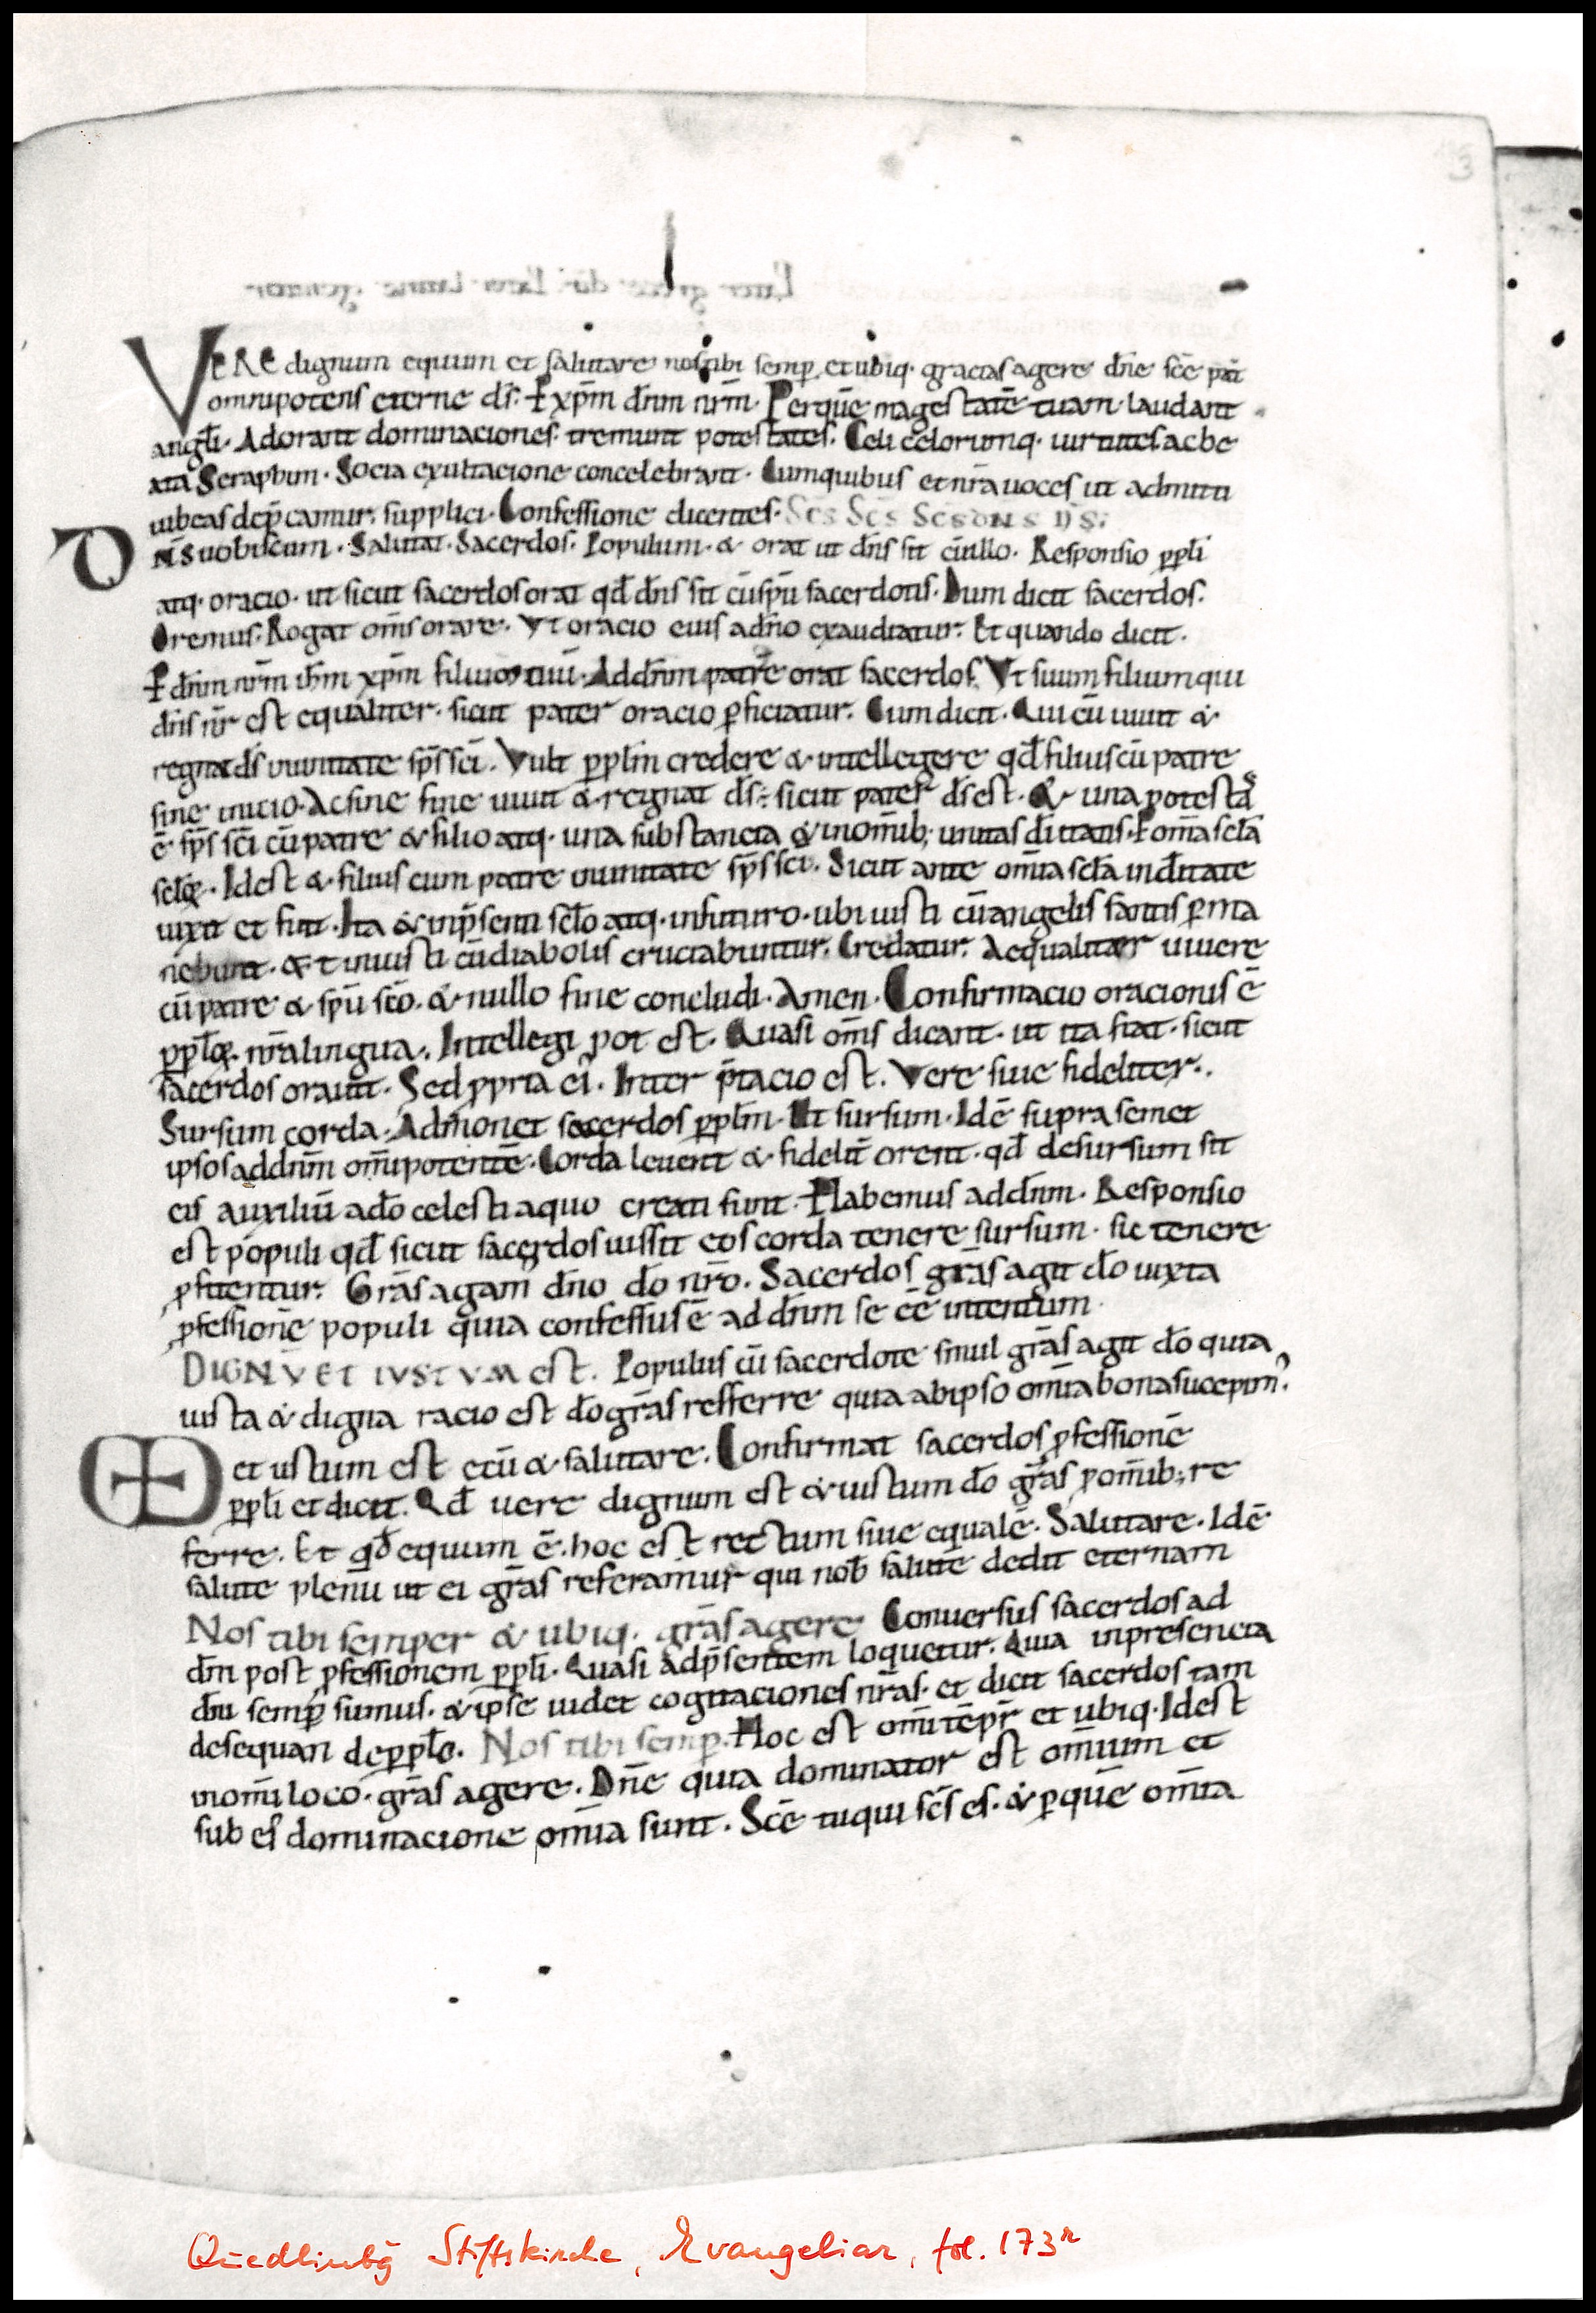 3
VERE dignum equum et salutare nos tibi semp̲. et ubiq· gracias agere dn̄e sc̄e pat̄
omnipotens eterne ds̄. ꝑ xp̄m dn̄m nr̄m. Per quē magestatē tuam laudant
angl̄i. Adorant dominaciones. tremunt potestates. Celi celorumq· uirtutes ac be
ata Seraphim. Socia exultacione concelebrant. Cum quibus et nr̄a uoces ut admitti
iubeas dep̄camur. supplici. Confessione dicentes. Sc̄s Sc̄s Sc̄s DN̄S D̄S.
DN̄S uobiscum. Salutat. Sacerdos. Populum. & orat ut dn̄s sit cū illo. Responsio ppl̄i
atq· oracio. ut sicut sacerdos orat qd̄ dn̄s sit cū sp̄u sacerdotis. Dum dicit sacerdos.
Oremus. Rogat om̄s orare. Vt oracio eius ad dn̄o exaudiatur. Et quando dicit.
ꝑ dn̄m nr̄m ih̄m xp̄m filium tuū. Ad dn̄m patrē orat sacerdos. Vt suum filium qui
dn̄s nr̄ est equaliter. sicut pater oracio ꝑficiatur. Cum dicit. Qui cū uiuit &
regnat ds̄ in unitate sp̄s sc̄i. Vult ppl̄m credere & intellegere qd̄ filius cū patre
sine inicio. Ac sine fine uiuit & regnat ds̄. sicut pater ds̄ est. & una potestas
ē sp̄s sc̄i cū patre & filio atq· una substancia & in om̄ib; unitas diuitatis. ꝑ om̄a scl̄a
scl̄oꝝ. Id est & filius cum patre in unitate sp̄s sc̄i. Sicut ante om̄ia scl̄a in ditate
uixit et fuit. Ita & in p̄senti scl̄o atq· in futuro. ubi iusti cū angelis santis ꝑma
nebunt. & t iniusti cū diabolis cruciabuntur. Credatur. Aequaliter uiuere
cū patre & sp̄u sc̄o. & nullo fine concludi. Amen. Confirmacio oracionis ē
ppl̄oꝝ. nr̄a lingua. Intellegi pot est. Quasi om̄s dicant. ut ita fiat. sicut
sacerdos orauit. Sed ꝓpria ei. Inter p̄tacio est. Vere siue fideliter.
Sursum corda. Admonet sacerdos ppl̄m. Ut sursum. Id ē supra semet
ipsos ad dn̄m om̄ipotentē. Corda leuent & fidelit̄ orent. qd̄ desursum sit
eis auxiliū a do celesti a quo creati sunt. Habemus ad dn̄m. Responsio
est populi qd̄ sicut sacerdos iussit eos corda tenere sursum. sic tenere
ꝓfitentur. Grās agam dn̄o do nr̄o. Sacerdos grās agit do iuxta
ꝓfessionē populi quia confessus ē ad dn̄m se eē intentum
DIGNV̄ ET IVSTVM est. Populus cū sacerdote simul grās agit do quia
iusta & digna racio est do grās refferre quia ab ipso om̄ia bona sucepim̄
et ustum est ecū & salutare. Confirmat sacerdos ꝓfessionē
ppl̄i et dicit. Qd̄ uere dignum est & iustum do grās ꝓ om̄ib; re
ferre. Et qd̄ equum ē. hoc est rectum siue equalē. Salutare. Id ē
salute plenū ut ei grās referamur qui nob̄ salutē dedit eternam
Nos tibi semper & ubiq. grās agere Conuersus sacerdos ad
dm̄ post ꝓfessionem ppl̄i. Quasi ad p̄sentem loquetur. Quia in presencia
dn̄i semp̲ sumus. & ipse uidet cogitaciones nr̄as. et dicit sacerdos tam
de se quam de ppl̄o. Nos tibi semp̲. Hoc est om̄i tēpr̄ et ubiq. Id est
in om̄i loco. grās agere. Dn̄e quia dominator est om̄ium et
sub ei dominacione om̄ia sunt. Sc̄e tu qui sc̄s es. & ꝑ quē om̄ia
Quedlinbg Stiftskirche, Evangeliar, fol. 173r